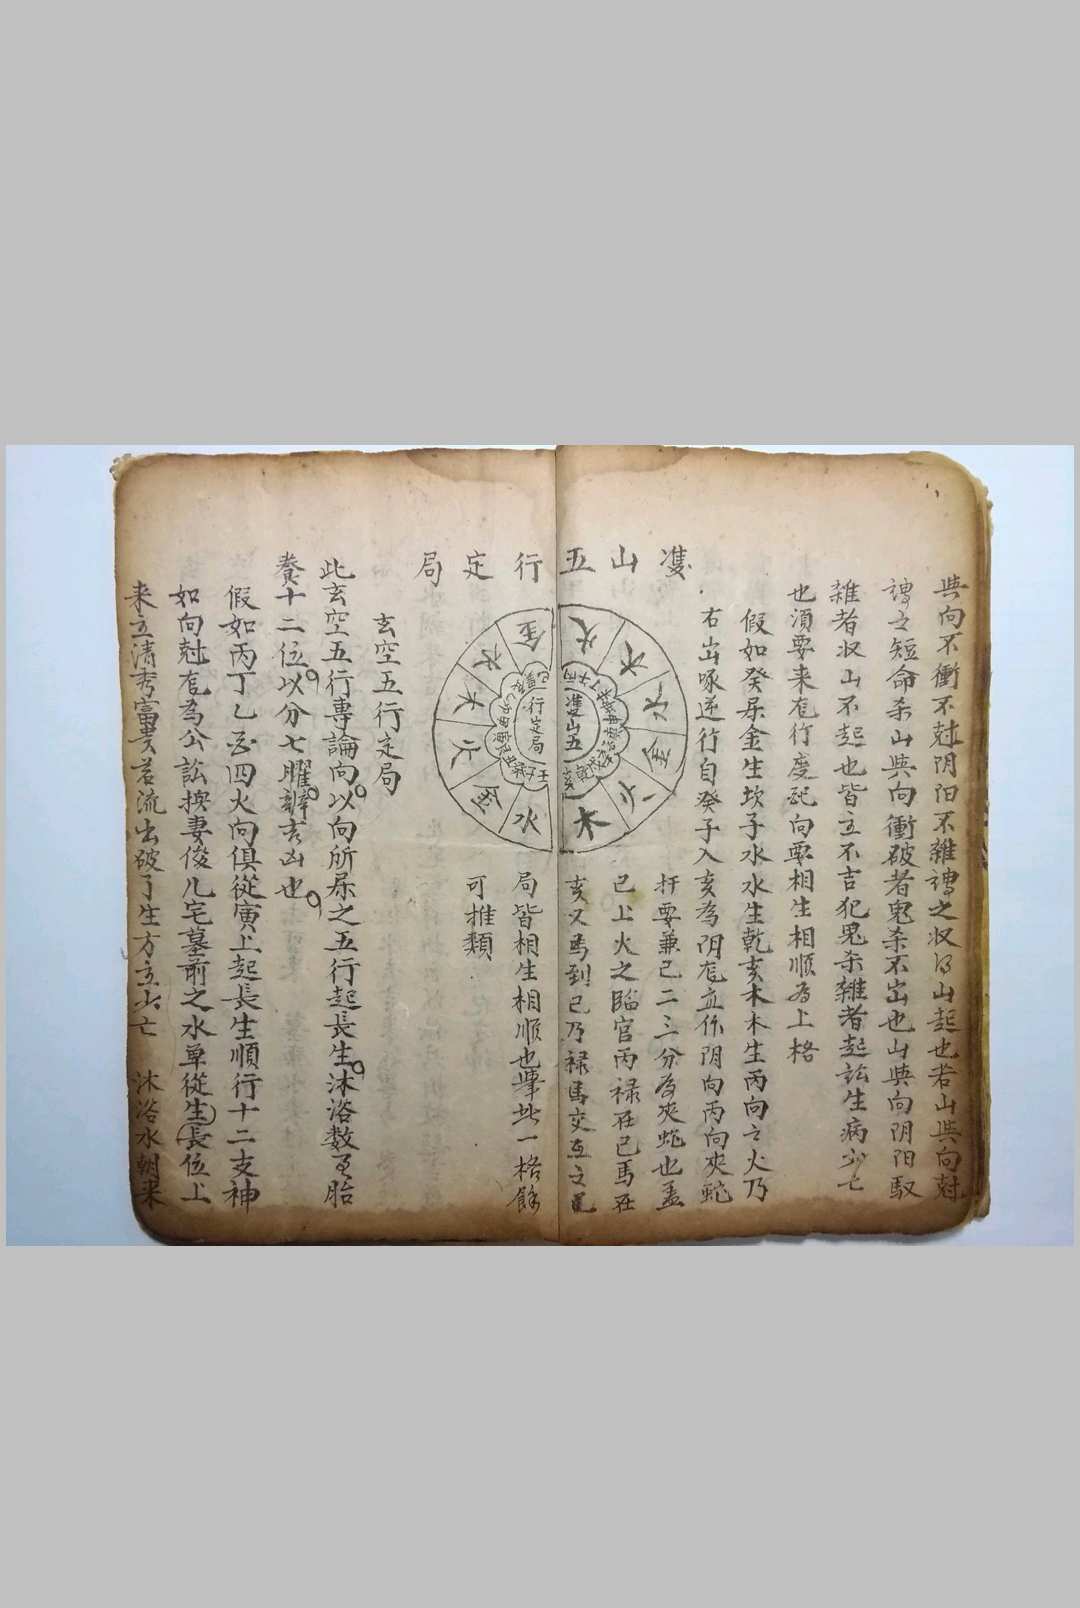 與向不衝不尅阴阳不雜謂之收山起也若山與向尅
謂之短命杀山與向衝破者鬼杀不出也山與向阴阳駁
雜者收山不起也皆立不吉犯鬼杀雜者起訟生病少亡
也須要来龙行度配向要相生相順為上格
假如癸屎金生坎子水水生乾亥木木生丙向之火乃
右出啄逆行自癸子入亥為阴龙立作阴向丙向夾蛇
扦要兼己二三分為夾蛇也盖
己上火之臨官丙禄在已馬在
亥又馬到已乃禄馬交互之
隻山五行定局
火 木 水 金 火 木
金 水 木 火 金 水
隻山五行定局
局皆相生相順也舉此一格餘
可推類
玄空五行定局
此玄空五行專論向以向所屎之五行起長生沐浴数至胎
養十二位以分七曜辨吉凶也
假如丙丁乙酉四火向俱從寅上起長生順行十二支神
如向尅龙為公訟換妻俊凡宅墓前之水单從生長位上
来立清秀富贵若流出破了生方立少亡 沐浴水朝来